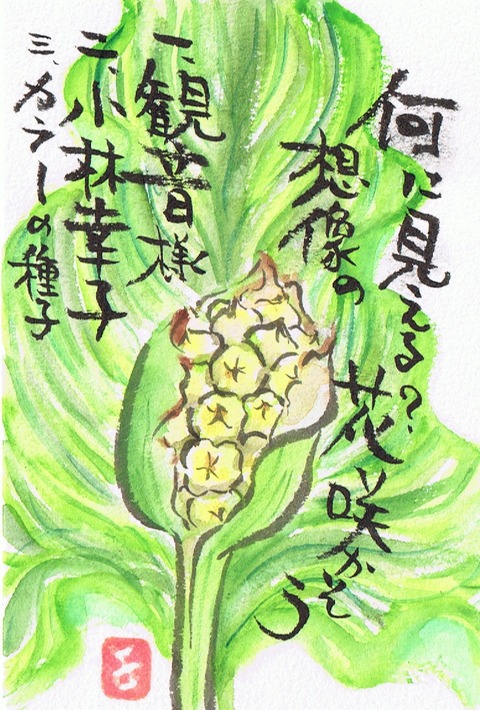 何に見える？
想像の
花咲かそう
一、観音様
二、小林幸子
三、カラーの種子